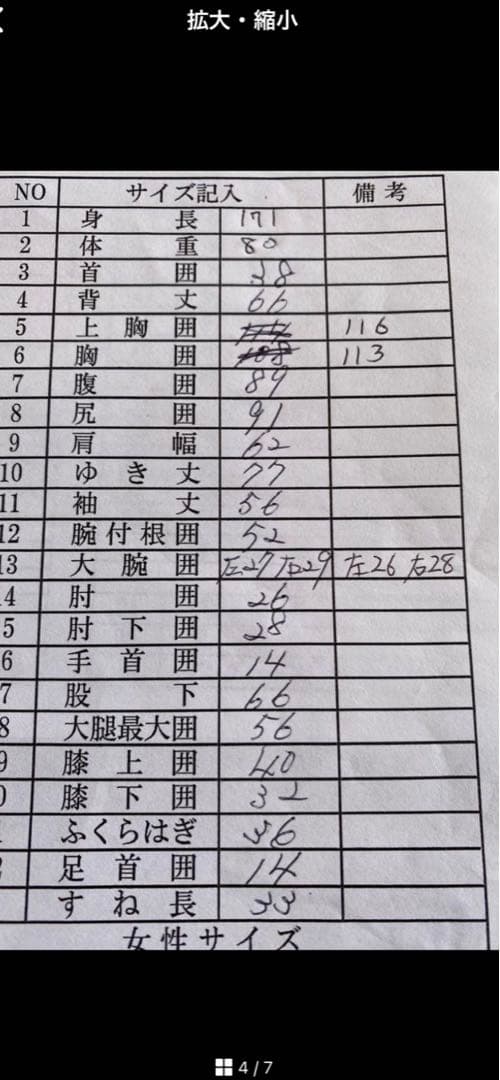 拡大・縮小
NO サイズ記入 備考
1 身長 171
2 体重 80
3 首囲 38
4 背丈 66
5 上胸囲 116
6 胸囲 113
7 腹囲 89
8 尻囲 91
9 肩幅 62
10 ゆき丈 77
11 袖丈 56
12 腕付根囲 52
13 大腕囲 左27 右29 左26 右28
4 肘囲 26
5 肘下囲 28
6 手首囲 14
7 股下 66
8 大腿最大囲 56
9 膝上囲 40
0 膝下囲 32
ふくらはぎ 36
2 足首囲 14
すね長 33
女性サイズ
4 / 7